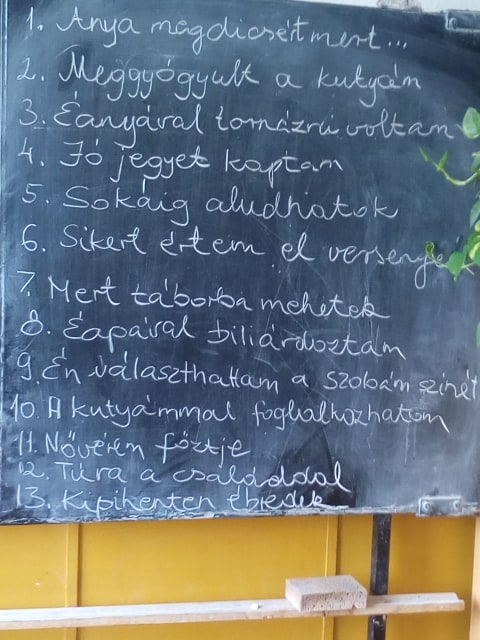 1. Anya megdicsért mert...
2. Meggyógyult a kutyám
3. Éanyával tornázni voltam
4. Jó jegyet kaptam
5. Sokáig aludhatok
6. Sikert értem el versenye
7. Mert táborba mehetek
8. Éapával biliárdoztam
9. Én választhattam a szobám színét
10. A kutyámmal foglalkozhatom
11. Nővérem főztje
12. Túra a családdal
13. Kipihenten ébredek